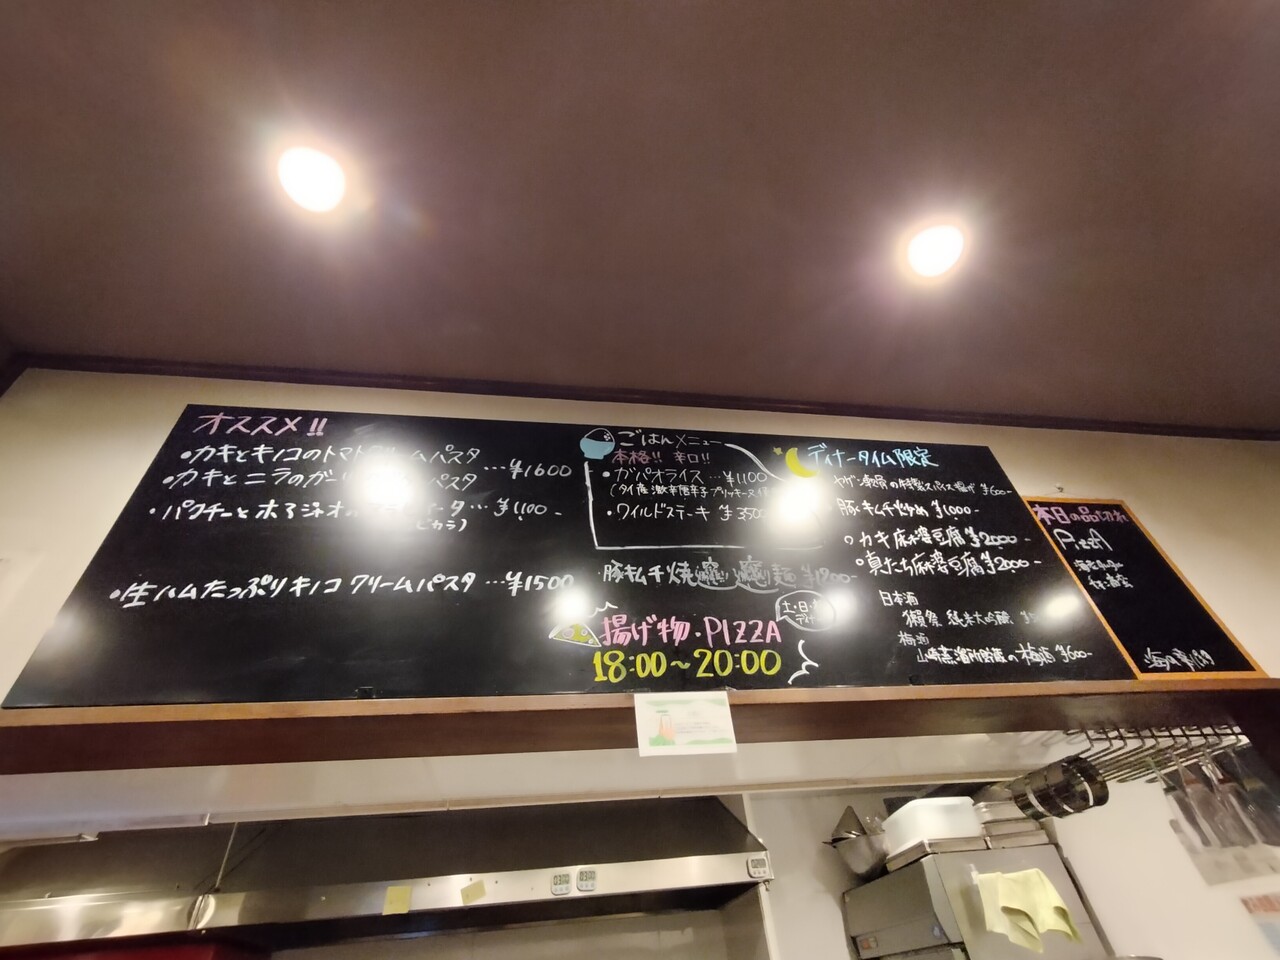 オススメ!!
・カキとキノコのトマトクリームパスタ
・カキとニラのガーリ パスタ …¥1600
・パクチーと ータ…¥1,100-
ピカラ)
・生ハムたっぷりキノコ クリームパスタ …¥1500
ごはんメニュー
本格!! 辛口!!
・ガパオライス …¥1100
(タイ産 激辛唐辛子 プリッキーヌ
・ワイルドステーキ ¥3500
・豚キムチ焼 麺 ¥1200-
揚げ物・PIZZA
18:00~20:00
土・日・
ディナータイム限定
¥600-
・豚キムチ炒め ¥1,000-
・カキ麻婆豆腐 ¥2000-
・真たち麻婆豆腐 ¥2000-
日本酒
獺祭 純米大吟醸
梅酒
山崎蒸溜所貯蔵の梅酒 ¥600-
本日の品切れ
PizzA